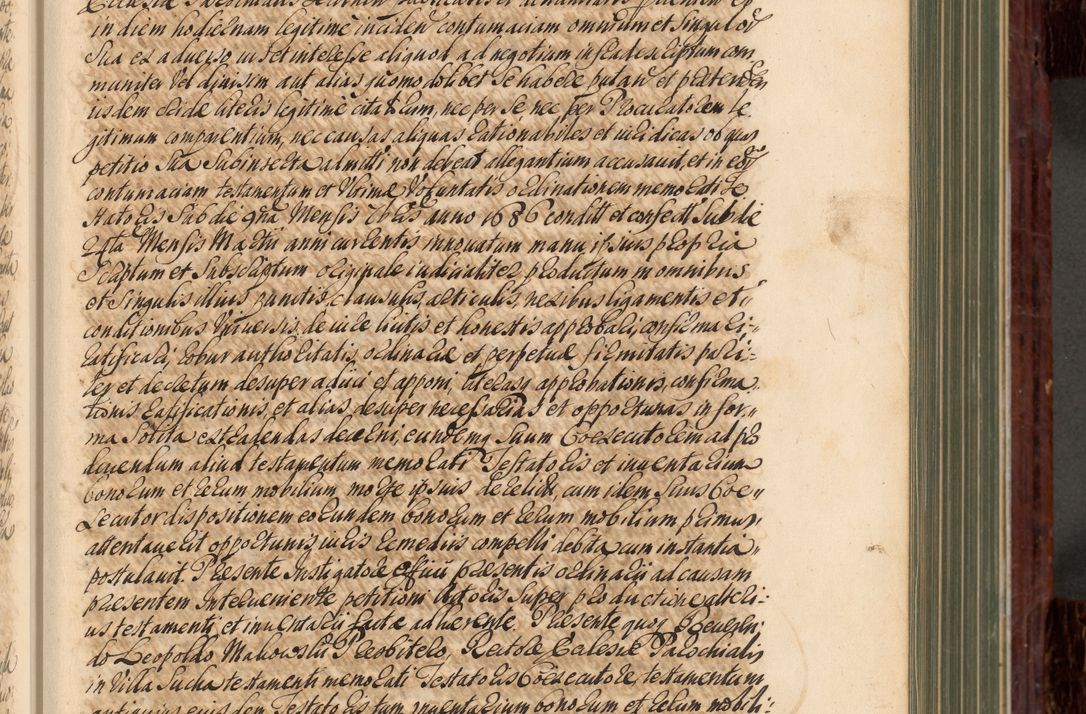 in diem hodiernam legitime inciden contumaciam omnium et singulor
Sua ex adverso iu set interesse aliquod ad negotium infrascriptum com
muniter vel divisim aut alias quomodolibet se habere putan et praetenden
iisdem literis legitime citat Eum, nec per se, nec per Procuratorem le
gitimum comparentium, nec causas aliquas rationabiles et iuridicas ob quas
petitio Sua Subinserta admitti non debeat allegantium accusavit, et in eor
contumaciam testamentum et Ultimae Voluntatis ordinationem memorati Te
statoris Sub die 9na Mensis 7bris anno 1686 condit et confect Sub die
Mensis Martii anni currentis innovatum manu ipsius propria
Scriptum et Subscriptum originale iudicialiter productum in omnibus
et Singulis illius punctis, clausulis, articulis, nexibus ligamentis et
conditionibus Universis, de iure licitis et honestis approbari, confirmari
ratificari, robur authoritatis, ordinariae et perpetuae firmitatis pari-
ter et decretum desuper adiici et apponi, literasq approbationis, confirma
tionis ratificationis, et alias desuper necessarias et opportunas in for
ma Solita extradendas decerni, eundemq Suum Coexecutorem ad pro
ducendum aliud testamentum memorati Testatoris et inventarium
bonorum et rerum mobilium, morte ipsius derelict, cum idem Suus Coe
xecutor dispositionem eorundem bonorum et rerum mobilium primum
attentaverit opportunis iuris remediis compelli debita cum instantia
postulavit. Praesente Instigatore officii praesentis ordinarii ad causam
praesentem Interveniente petitioni Actoris Super productione alteri-
us testamenti et inventarii factae adhaerente. Praesente quoq Reveren
do Leopoldo Makowski Praesbitero, Rectore Ecclesiae Parochialis
in Villa Sucha testamenti memorati Testatoris Coexecutore testamentum
antiquius eiusdem Testatoris tum inventarium bonorum et rerum mobili-